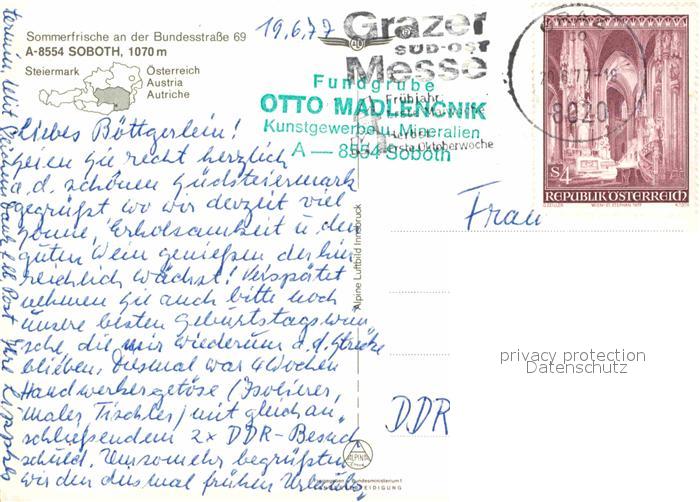 Sommerfrische an der Bundesstraße 69
A-8554 SOBOTH, 1070 m
Steiermark
Österreich
Austria
Autriche
19.6.77
Grazer
SÜD-OST
Messe
Frühjahr
erste Oktoberwoche
Fundgrube
OTTO MADLENCNIK
Kunstgewerbe u. Mineralien
A — 8554 Soboth
20.6.77-19
8020
S4
REPUBLIK ÖSTERREICH
Liebes Böttgerlein!
Seien Sie recht herzlich
a.d. schönen Südsteiermark
gegrüßt wo wir derzeit viel
Sonne, Erholsamkeit u. den
guten Wein genießen der hier
reichlich wächst! Verspätet
nehmen Sie auch bitte noch
unsere besten Geburtstagswün
sche, die mir wiederum a.d. Strecke
blieben. Diesmal war 4 Wochen
Handwerkergetöse (Isolierer,
Maler, Tischler) mit gleich an
schließendem 2x DDR-Besuch
schuld. Umsomehr begrüßten
wir den diesmal frühen Urlaubs
termin. Mit Post Ihre
Alpine Luftbild Innsbruck
Frau
DDR
privacy protection
Datenschutz
ALPINE